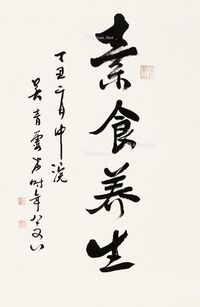 素食养生
丁丑二月中浣
吴青霞书时年八又八